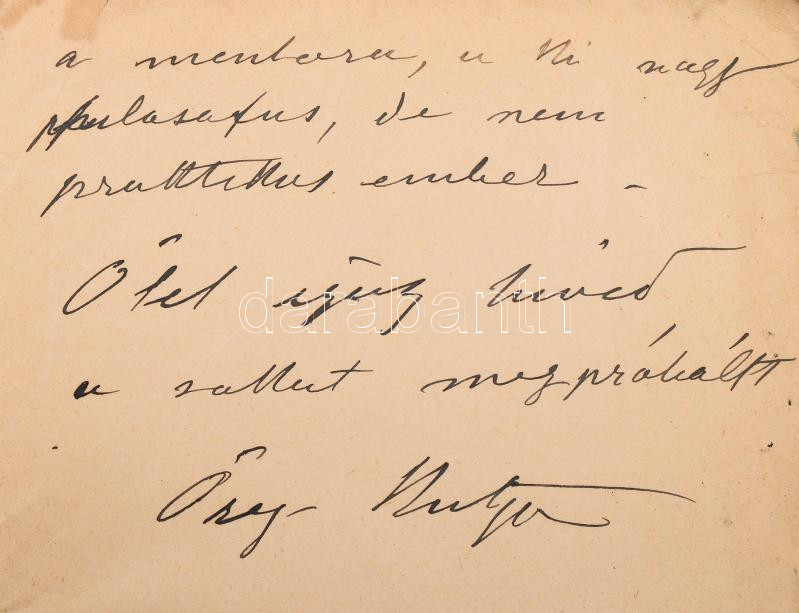 a mentora, a ki nagy
philosofus, de nem
praktikus ember –
Ölel igaz hived
a sokat megpróbált
Öreg Kutya
darabanth